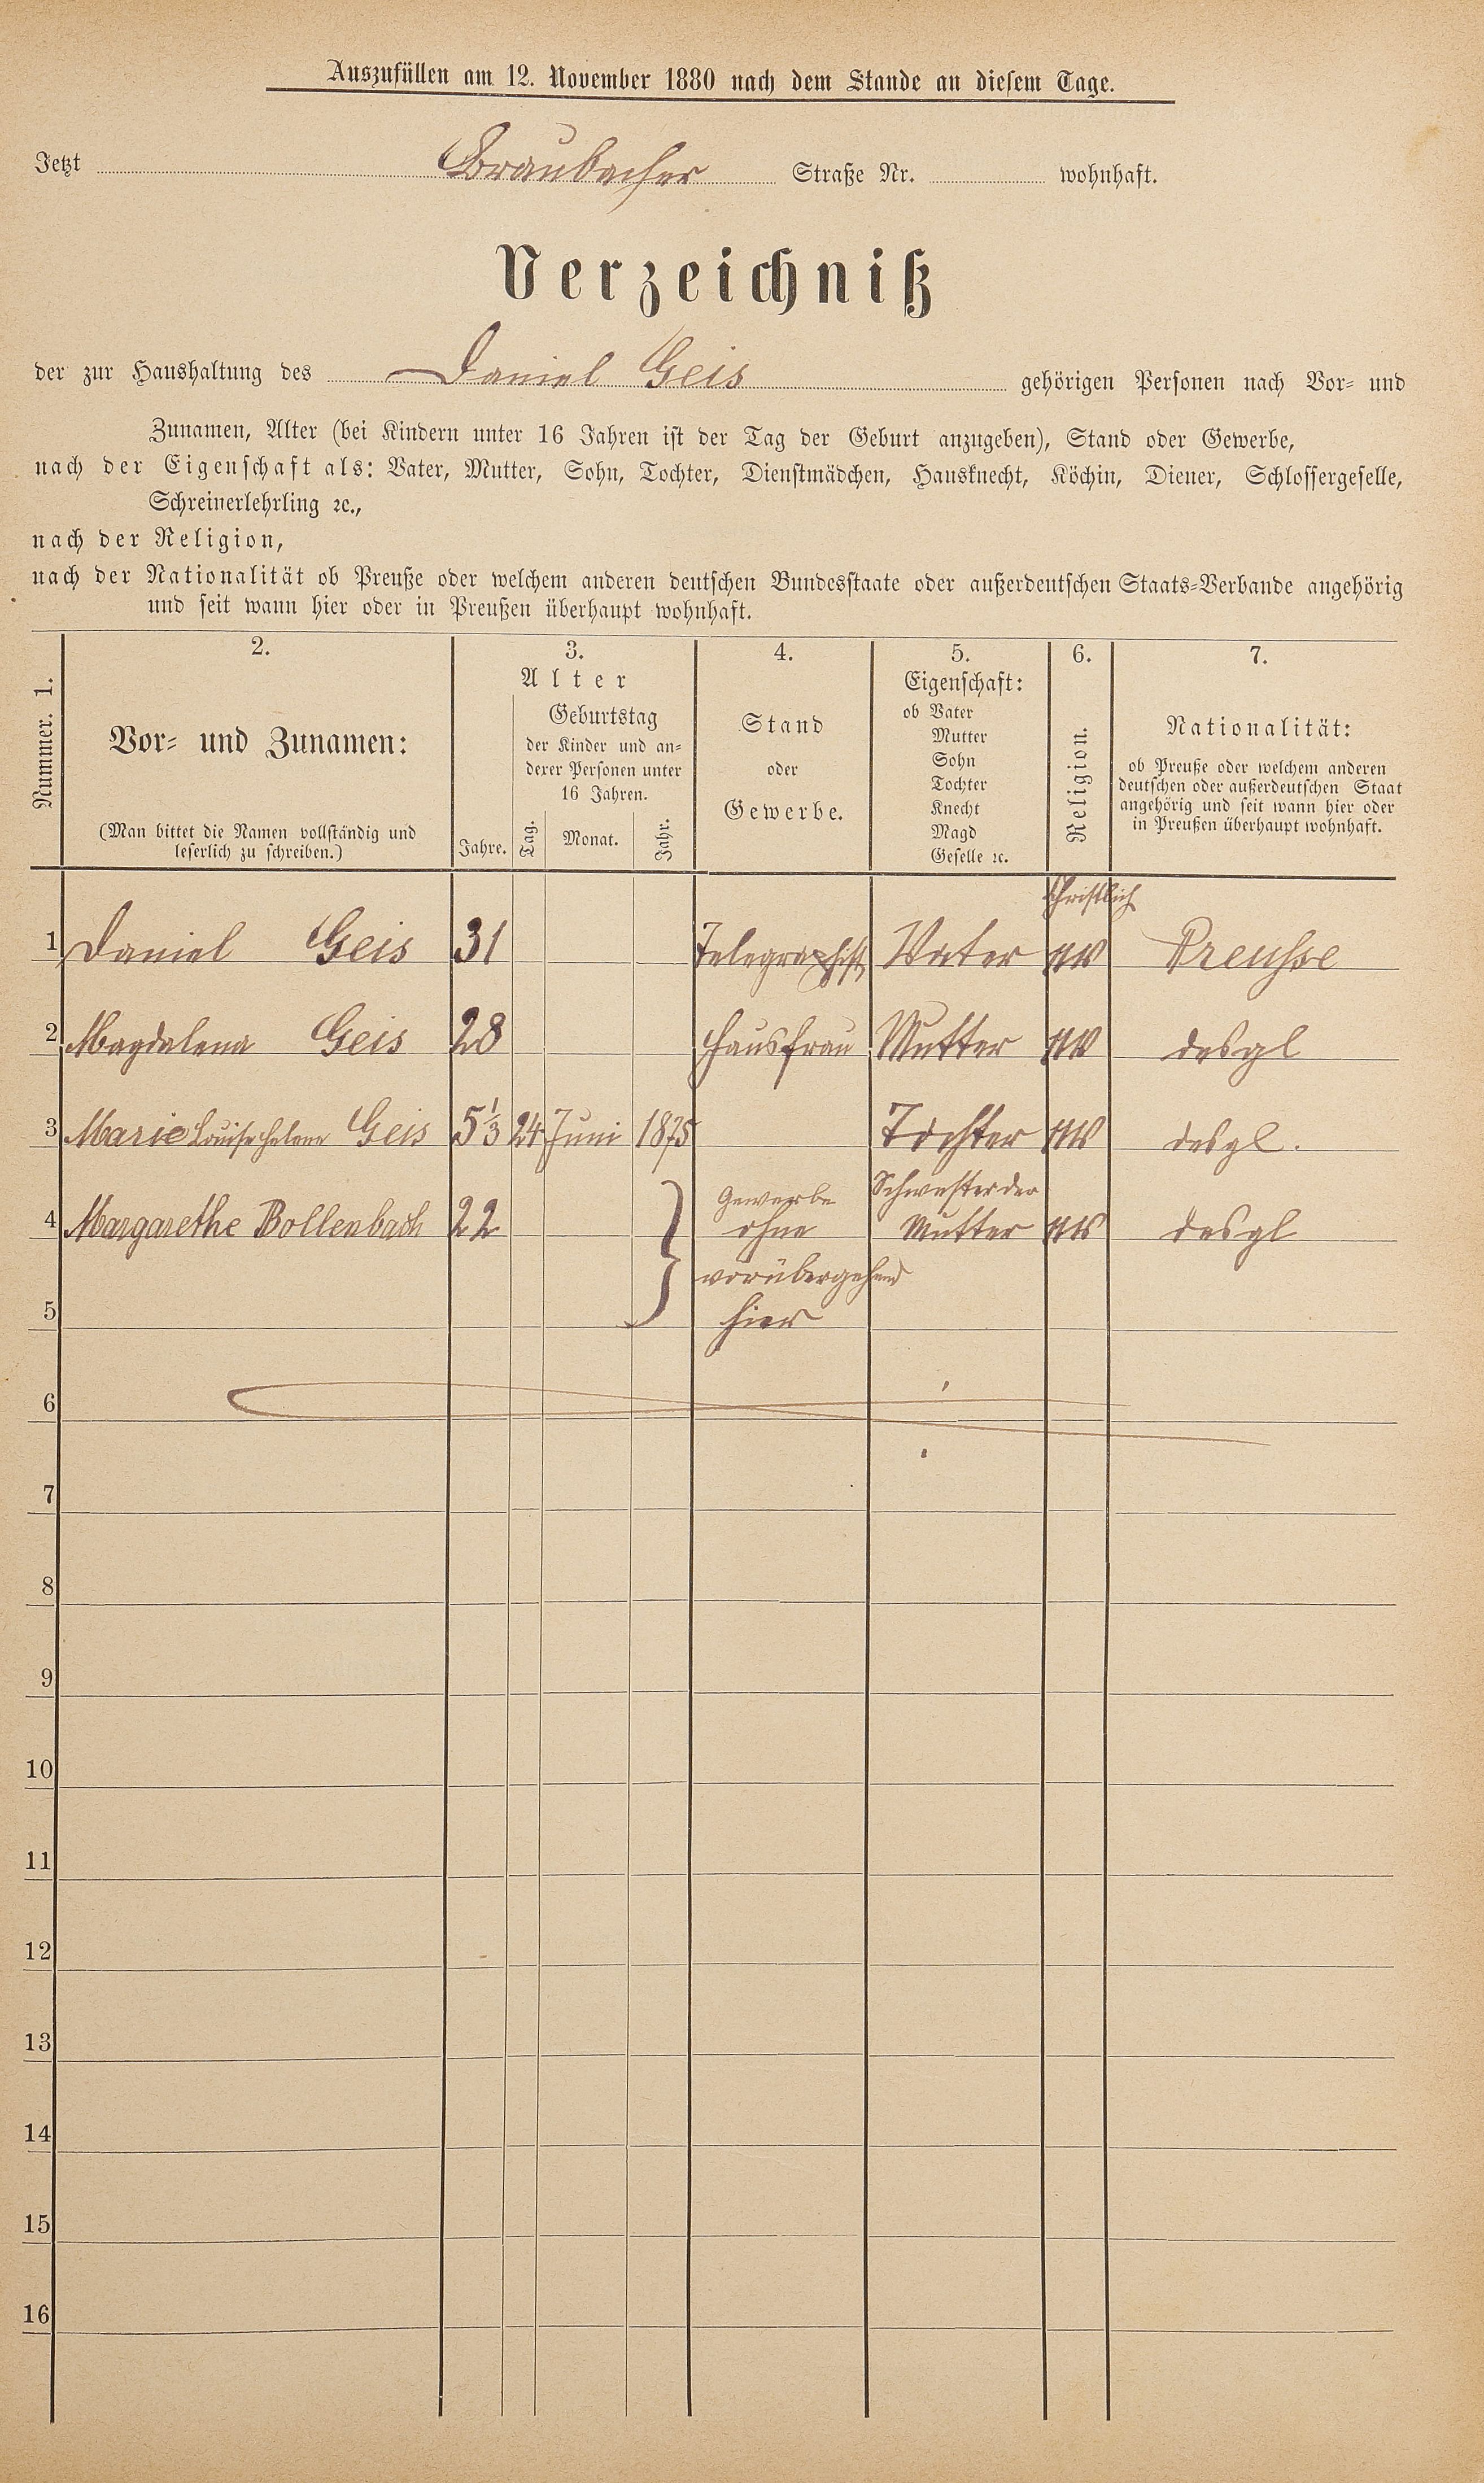 Auszufüllen am 12. November 1880 nach dem Stande an diesem Tage.
Jetzt Braubacher Straße Nr. wohnhaft.
Verzeichniß
der zur Haushaltung des Daniel Geis gehörigen Personen nach Vor- und
Zunamen, Alter (bei Kindern unter 16 Jahren ist der Tag der Geburt anzugeben), Stand oder Gewerbe,
nach der Eigenschaft als: Vater, Mutter, Sohn, Tochter, Dienstmädchen, Hausknecht, Köchin, Diener, Schlossergeselle,
Schreinerlehrling ꝛc.,
nach der Religion,
nach der Nationalität ob Preuße oder welchem anderen deutschen Bundesstaate oder außerdeutschen Staats-Verbande angehörig
und seit wann hier oder in Preußen überhaupt wohnhaft.
Nummer. 1.
2.
Vor- und Zunamen:
(Man bittet die Namen vollständig und
leserlich zu schreiben.)
3.
Alter
Geburtstag
der Kinder und an-
derer Personen unter
16 Jahren.
Jahre. Tag. Monat. Jahr.
4.
Stand
oder
Gewerbe.
5.
Eigenschaft:
ob Vater
Mutter
Sohn
Tochter
Knecht
Magd
Geselle ꝛc.
6.
Religion.
7.
Nationalität:
ob Preuße oder welchem anderen
deutschen oder außerdeutschen Staat
angehörig und seit wann hier oder
in Preußen überhaupt wohnhaft.
christlich
1 Daniel Geis 31 Telegraphist Vater Preusse
2 Magdalena Geis 28 Hausfrau Mutter desgl
3 Marie Louise Helene Geis 5 1/3 24 Juni 1875 Tochter desgl.
Gewerbe Schwester der
4 Margarethe Bollenbach 22 ohne Mutter desgl
vorübergehend
5 hier
6
7
8
9
10
11
12
13
14
15
16